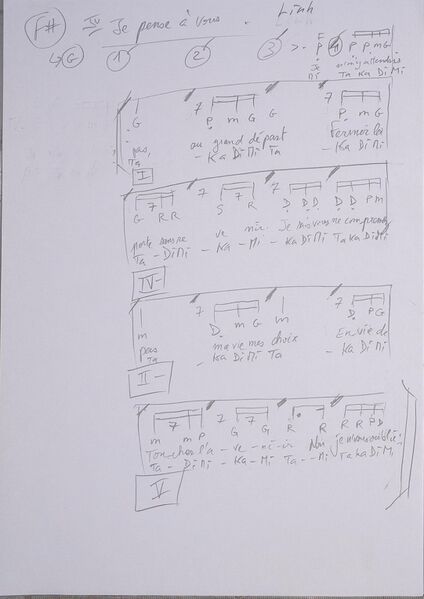 F# IV Je pense à vous. Linh
↳ G 1 2 3 > P P P m G
Je
Ni Ta Ka Di Mi
G 7 P m G G 7 P m G
pas, au grand départ Fermer la
Ta - Ka Di Mi Ta - Ka Di Mi
I
G 7 R R 7 S 7 R D D D D D P m
porte sans re ve nir. Je
Ta - Di Mi - Ka - Mi - Ka Di Mi Ta Ka Di Mi
IV
m 7 D m G m 7 D P G
pas ma vie mes choix En vie de
Ta - Ka Di Mi Ta - Ka Di Mi
II -
m 7 m P 7 G 7 G R R R R P D
l'a - ve - ni - ir Non
Ta - Di Mi - Ka - Mi Ta - - Mi Ta Ka Di Mi
V